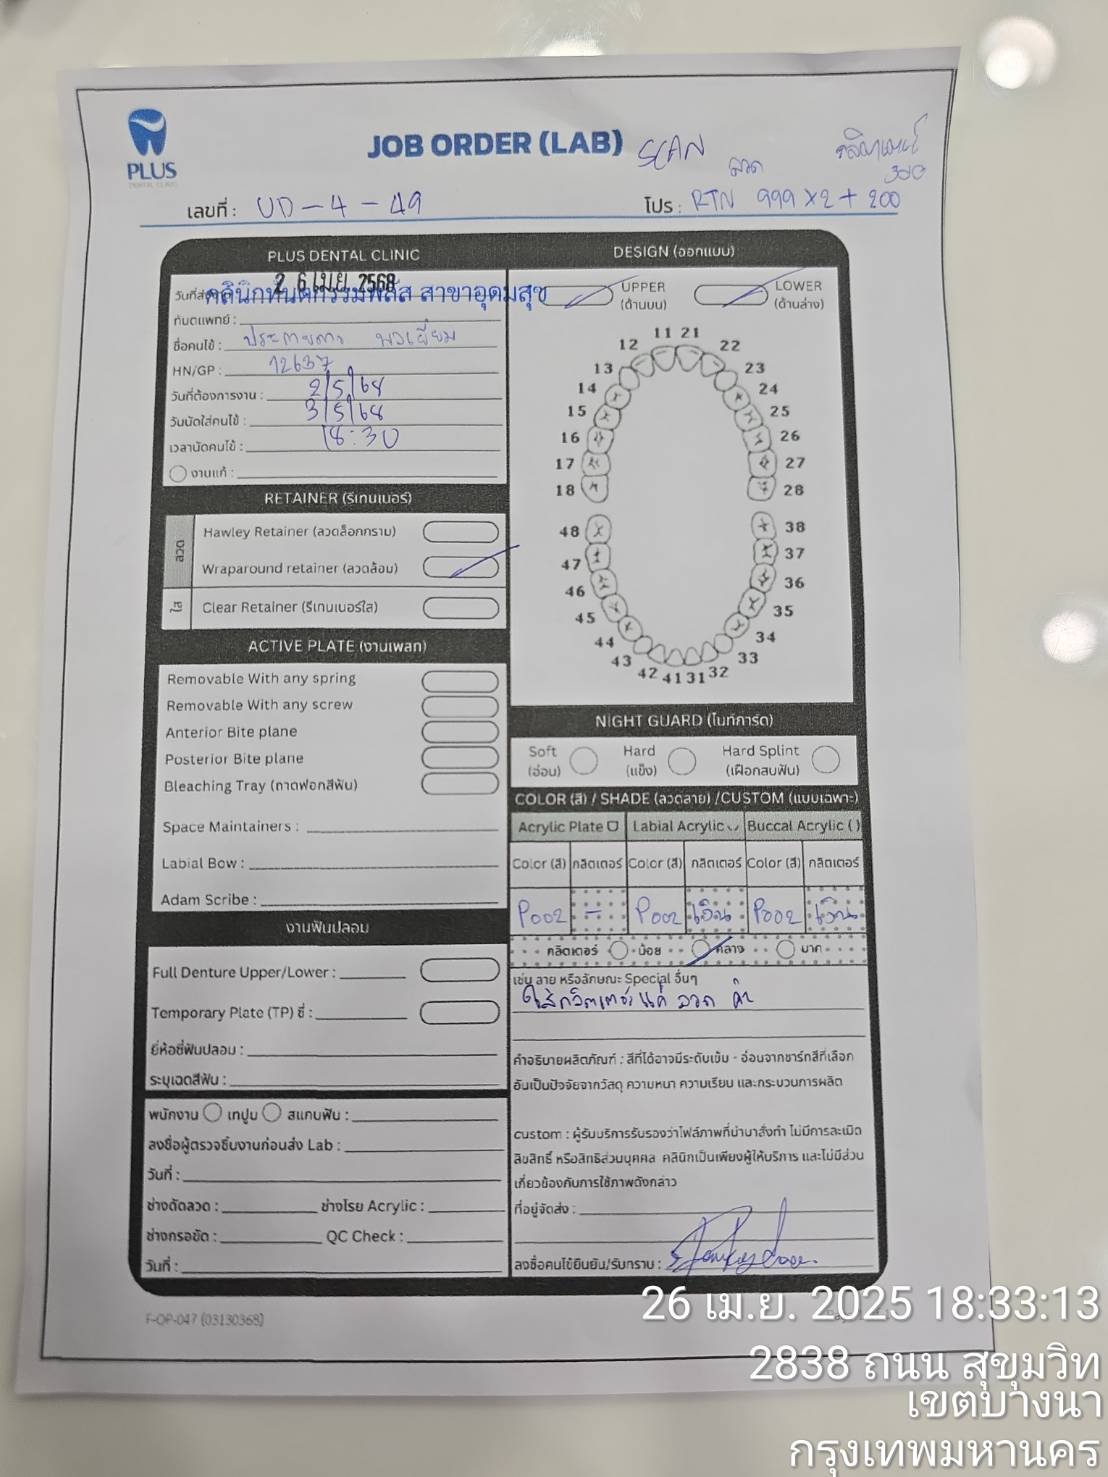 PLUS
DENTAL CLINIC
JOB ORDER (LAB)
SCAN
ลวด
เลขที่ : UD-4-49
โปร : RTN 999 x 2 + 200
PLUS DENTAL CLINIC
2 6 เม.ย. 2568
คลินิกทันตกรรมพลัส สาขาอุดมสุข
ทันตแพทย์ :
ชื่อคนไข้ :
HN/GP : 12637
วันที่ต้องการงาน : 2/5/68
วันนัดใส่คนไข้ : 3/5/68
เวลานัดคนไข้ : 18:30
งานแก้ :
RETAINER (รีเทนเนอร์)
ลวด
Hawley Retainer (ลวดล็อกกราม)
Wraparound retainer (ลวดล้อม)
ใส
Clear Retainer (รีเทนเนอร์ใส)
ACTIVE PLATE (งานเพลท)
Removable With any spring
Removable With any screw
Anterior Bite plane
Posterior Bite plane
Bleaching Tray (ถาดฟอกสีฟัน)
Space Maintainers :
Labial Bow :
Adam Scribe :
งานฟันปลอม
Full Denture Upper/Lower :
Temporary Plate (TP) ซี่ :
ยี่ห้อซี่ฟันปลอม :
ระบุเฉดสีฟัน :
พนักงาน เทปูน สแกนฟัน :
ลงชื่อผู้ตรวจชิ้นงานก่อนส่ง Lab :
วันที่ :
ช่างดัดลวด : ช่างโรย Acrylic :
ช่างกรอขัด : QC Check :
วันที่ :
DESIGN (ออกแบบ)
UPPER
(ด้านบน)
LOWER
(ด้านล่าง)
11 21
12 22
13 23
14 24
15 25
16 26
17 27
18 28
48 38
47 37
46 36
45 35
44 34
43 33
42 41 31 32
NIGHT GUARD (ไนท์การ์ด)
Soft
(อ่อน)
Hard
(แข็ง)
Hard Splint
(เฝือกสบฟัน)
COLOR (สี) / SHADE (ลวดลาย) /CUSTOM (แบบเฉพาะ)
Acrylic Plate Labial Acrylic Buccal Acrylic ( )
Color (สี) กลิตเตอร์ Color (สี) กลิตเตอร์ Color (สี) กลิตเตอร์
P002 - P002 เงิน P002 เงิน
กลิตเตอร์ น้อย กลาง มาก
เช่น ลาย หรือลักษณะ Special อื่นๆ
ใส่กลิตเตอร์ แค่ ลวด
คำอธิบายผลิตภัณฑ์ : สีที่ได้อาจมีระดับเข้ม - อ่อนจากชาร์ทสีที่เลือก
อันเป็นปัจจัยจากวัสดุ ความหนา ความเรียบ และกระบวนการผลิต
custom : ผู้รับบริการรับรองว่าไฟล์ภาพที่นำมาสั่งทำ ไม่มีการละเมิด
ลิขสิทธิ์ หรือสิทธิส่วนบุคคล คลินิกเป็นเพียงผู้ให้บริการ และไม่มีส่วน
เกี่ยวข้องกับการใช้ภาพดังกล่าว
ที่อยู่จัดส่ง :
ลงชื่อคนไข้ยืนยัน/รับทราบ :
F-OP-047 (03130368)
26 เม.ย. 2025 18:33:13
2838 ถนน สุขุมวิท
เขตบางนา
กรุงเทพมหานคร